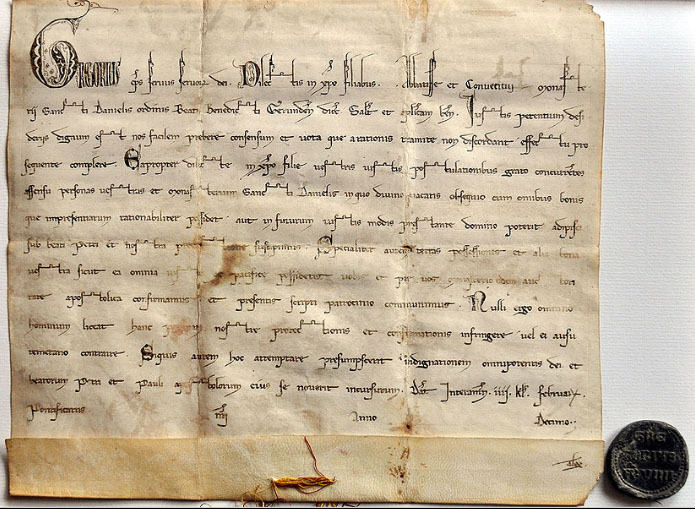 GREGORIUS ep̄s servus servor̄ dei. Dilectis in xp̄o filiabus. Abbatisse et Conventui monaste
rii Sancti Danielis ordinis Beati Benedicti Gerunden̄ dioc̄ Salt̄ et aplicam ben̄. Iustis petentium desi
deriis dignum est nos facilem prebere consensum et vota que a rationis tramite non discordant effectu pro
sequente complere. Eapropter dilecte in xp̄o filie vestris iustis postulationibus grato concurrētes
assensu personas vestras et monasterium Sancti Danielis in quo divino vacatis obsequio cum omnibus bonis
que impresentiarum rationabiliter possidet aut in futurum iustis modis prestante domino poterit adipisci
sub beati Petri et nostra protectione suscipimus. Specialiter autem terras possessiones et alia bona
vestra sicut ea omnia iuste pacifice possidetis vobis et per vos monasterio eidem auc tori
tate apostolica confirmamus et presentis scripti patrocinio communimus. Nulli ergo omnino
hominum liceat hanc paginam nostre protectionis et confirmationis infringere vel ei ausu
temerario contraire. Siquis autem hoc attemptare presumpserit indignationem omnipotentis dei et
beatorum Petri et Pauli apostolorum eius se noverit incursurum. Dat̄ Interamn̄ .iiij. kl̄. februar̄.
Pontificatus nr̄i Anno Decimo..